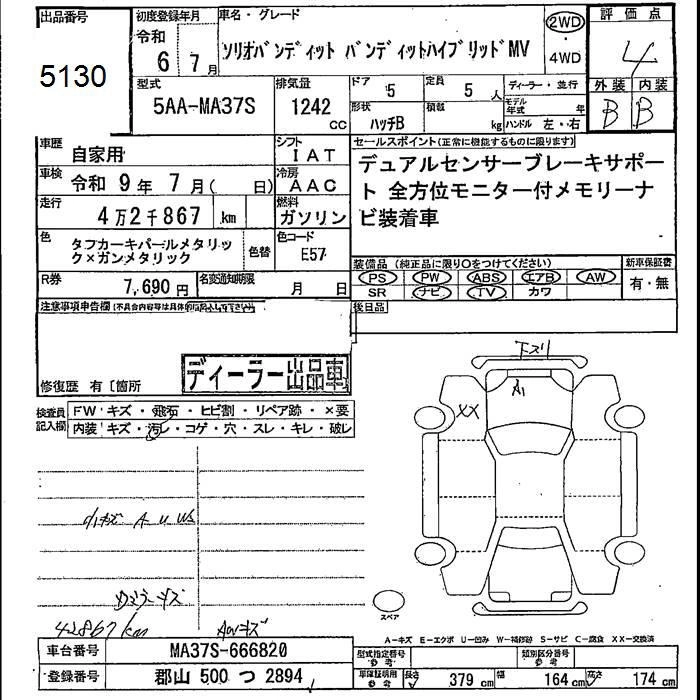 出品番号
5130
初度登録年月
令和
6年 7月
車名・グレード
ソリオバンディット バンディットハイブリッドMV
2WD
4WD
評価点
4
外装 内装
B B
型式
5AA-MA37S
排気量
1242
CC
ドア 5
定員 5 人
形状 ハッチB
積載 kg
ディーラー・並行
モデル年式 年
ハンドル 左・右
車歴 自家用
シフト IAT
車検 令和 9年 7月( 日)
冷房 AAC
走行 4万2千867 km
燃料 ガソリン
色 タフカーキパールメタリック×ガンメタリック
色替
色コード E57
R券 7,690円
名変通知期限 月 日
セールスポイント(正常に機能するものに限ります)
デュアルセンサーブレーキサポー
ト 全方位モニター付メモリーナ
ビ装着車
装備品(純正品に限り○をつけてください)
PS PW ABS エアB AW
SR ナビ TV カワ
新車保証書
有・無
後日品
注意事項申告欄
修復歴 有〔箇所
ディーラー出品車
検査員記入欄
FW キズ・飛石・ヒビ割・リペア跡・×要
内装 キズ・汚レ・コゲ・穴・スレ・キレ・破レ
A U
42867km
AWキズ
下ズリ
A1
XX
スペア
A-キズ E-エクボ U-凹み W-補修跡 S-サビ C-腐食 XX-交換済
車台番号 MA37S-666820
登録番号 郡山 500 つ 2894
型式指定番号 参考
類別区分番号 参考
車庫証明用 参考
長さ 379 cm 幅 164 cm 高さ 174 cm